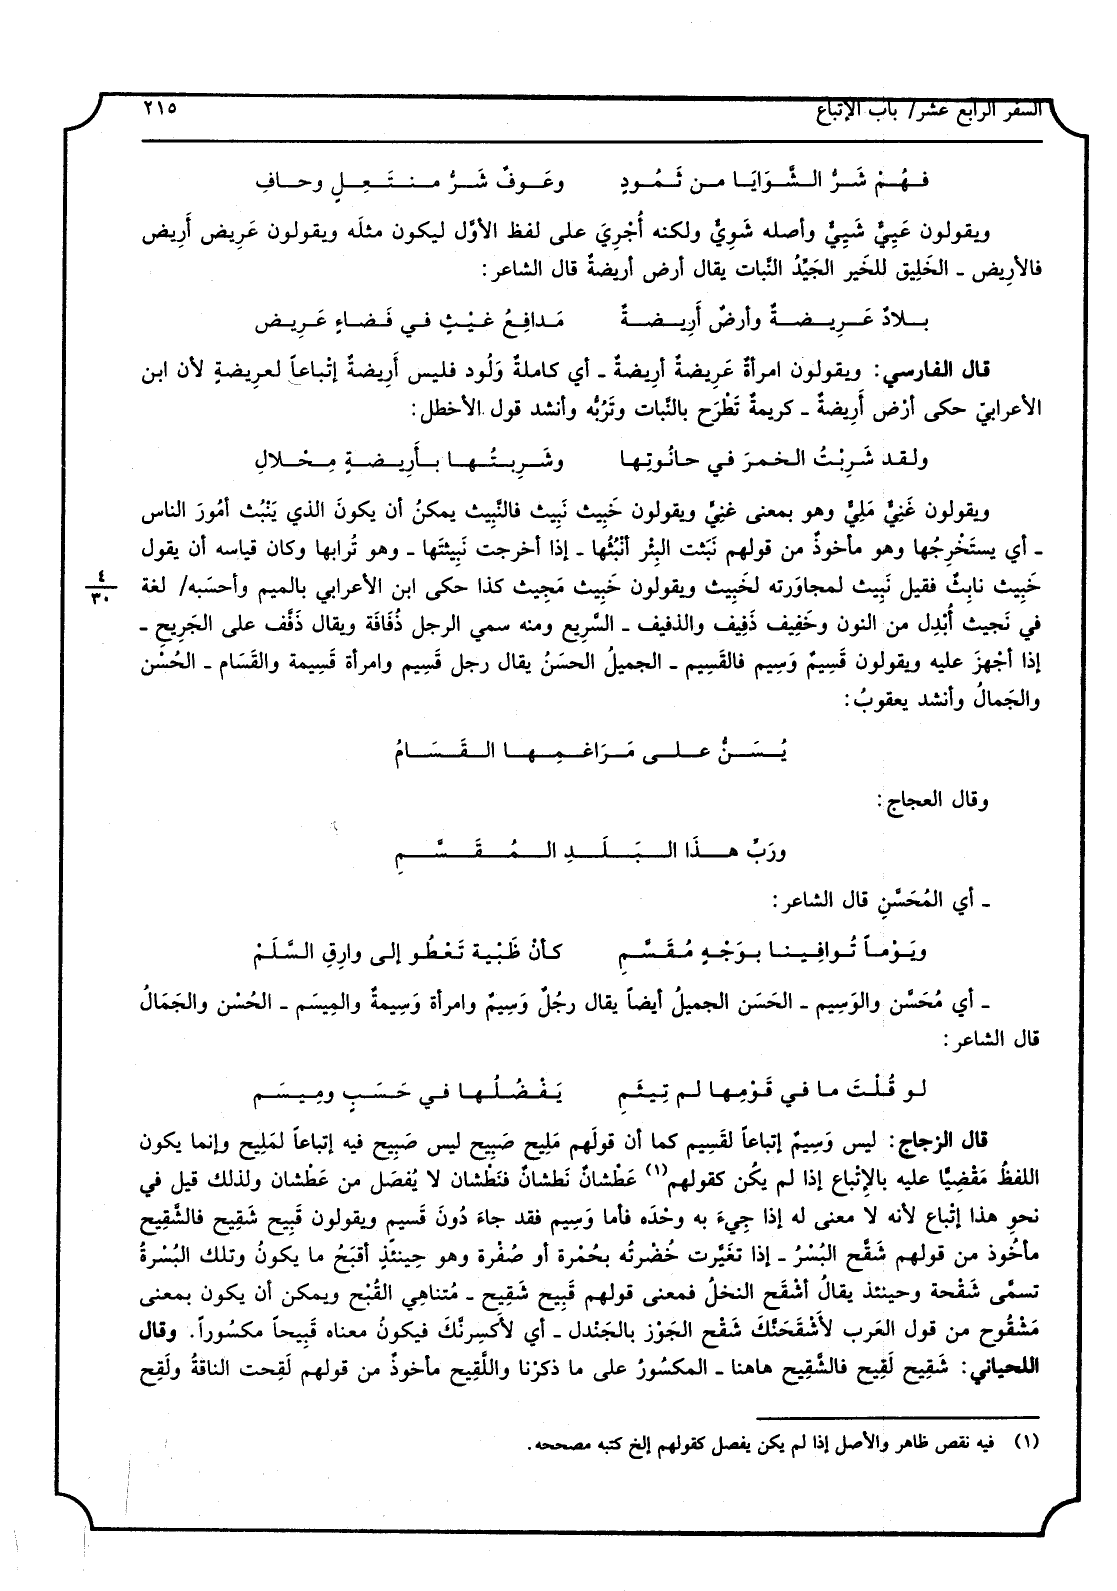 السفر الرابع عشر/ باب الإتباع ٢١٥
فـهُـمْ شَـرُّ الـشَّـوَايَـا مـن ثَـمُـودٍ وعَـوفٌ شَـرُّ مـنـتَـعِـلٍ وحـافِ
ويقولون عَيِيٌّ شَيِيٌّ وأصله شَوِيٌّ ولكنه أُجْرِيَ على لفظ الأوَّل ليكون مثلَه ويقولون عَرِيض أَرِيض
فالأرِيض ـ الخَلِيق للخير الجَيِّدُ النَّبات يقال أرض أريضةٌ قال الشاعر:
بـلادٌ عَـرِيـضـةٌ وأرضٌ أَرِيـضـةٌ مَـدافِـعُ غَـيْـثٍ في فَـضـاءٍ عَـرِيـض
قال الفارسي: ويقولون امرأةٌ عَرِيضةٌ أريضةٌ ـ أي كاملةٌ وَلُود فليس أَرِيضةٌ إتْباعاً لعرِيضةٍ لأن ابن
الأعرابيّ حكى أرْض أَرِيضةٌ ـ كريمةٌ تَطْرَح بالنَّبات وتَرُبُّه وأنشد قول الأخطل:
ولـقـد شَـرِبْـتُ الـخـمـرَ فـي حـانُـوتِـهـا وشَـرِبـتُـهـا بـأَرِيـضـةٍ مِـحْـلالِ
ويقولون غَنِيٌّ مَلِيٌّ وهو بمعنى غنِيٌّ ويقولون خَبِيث نَبِيث فالنَّبِيث يمكنُ أن يكونَ الذي يَنْبُث أمُورَ الناس
ـ أي يستَخْرِجُها وهو مأخوذٌ من قولهم نَبَثت البِئْر أنْبُثُها ـ إذا أخرجت نَبِيثتَها ـ وهو تُرابها وكان قياسه أن يقول
خَبِيث نابِثٌ فقيل نَبِيث لمجاوَرته لخَبِيث ويقولون خَبِيث مَجِيث كذا حكى ابن الأعرابي بالميم وأحسَبه/ لغة ٤/٣٠
في نَجيث أُبْدِل من النون وخَفِيف ذَفِيف والذفيف ـ السَّرِيع ومنه سمي الرجل ذُفَافَة ويقال ذَفَّف على الجَرِيحِ ـ
إذا أجْهزَ عليه ويقولون قَسِيمٌ وَسِيم فالقَسِيم ـ الجميلُ الحسَنُ يقال رجل قَسِيم وامرأة قَسِيمة والقَسَام ـ الحُسْن
والجَمالُ وأنشد يعقوبُ:
يُـسَـنُّ عـلـى مَـرَاغـمِـهـا الـقَـسَـامُ
وقال العجاج:
ورَبِّ هـذَا الـبَـلَـدِ الـمُـقَـسَّـمِ
ـ أي المُحَسَّنِ قال الشاعر:
ويَـوْمـاً تُـوافِـيـنـا بـوَجْـهٍ مُـقَـسَّـمٍ كـأنْ ظَـبْـيـة تَـعْـطُـو إلى وارِقِ الـسَّـلَـمْ
ـ أي مُحَسَّن والوَسِيم ـ الحَسَن الجميلُ أيضاً يقال رجُلٌ وَسِيمٌ وامرأة وَسِيمةٌ والمِيسَم ـ الحُسْن والجَمَالُ
قال الشاعر:
لـو قُـلْـتَ مـا في قَـوْمِـهـا لـم تِـيـثَـمِ يَـفْـضُـلُـهـا فـي حَـسَـبٍ ومِـيـسَـمِ
قال الزجاج: ليس وَسِيمٌ إتباعاً لقَسِيم كما أن قولَهم مَلِيح صَبِيح ليس صَبِيح فيه إتباعاً لمَلِيح وإنما يكون
اللفظُ مَقْضِيًّا عليه بالإتْباع إذا لم يكُن كقولهم(١) عَطْشانٌ نَطشانٌ فنَطْشان لا يُفصَل من عَطْشان ولذلك قيل في
نحوِ هذا إتْباع لأنه لا معنى له إذا جِيءَ به وحْدَه فأما وَسِيم فقد جاءَ دُونَ قَسيم ويقولون قَبِيح شَقِيح فالشَّقِيح
مأخُوذ من قولهم شَقَّح البُسْرُ ـ إذا تغَيَّرت خُضْرتُه بحُمْرة أو صُفْرة وهو حِينئذٍ أقبَحُ ما يكونُ وتلك البُسْرةُ
تسمَّى شَقْحة وحينئذ يقالُ أشْقَح النخلُ فمعنى قولهم قَبِيح شَقِيح ـ مُتناهِي القُبْح ويمكن أن يكون بمعنى
مَشْقُوح من قول العَرب لأَشْقَحَنَّكَ شَقْح الجَوْز بالجَندل ـ أي لأَكَسِرنَّكَ فيكونُ معناه قَبِيحاً مكسُوراً. وقال
اللحياني: شَقِيح لَقِيح فالشَّقِيح هاهنا ـ المكسُورُ على ما ذكرْنا واللَّقِيح مأخوذٌ من قولهم لَقِحت الناقةُ ولَقِح
(١) فيه نقص ظاهر والأصل إذا لم يكن يفصل كقولهم إلخ كتبه مصححه.